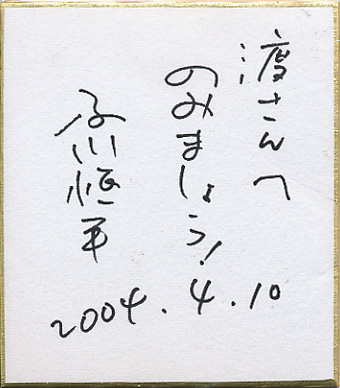 渡さんへ
のみましょう!
及川恒平
2004.4.10